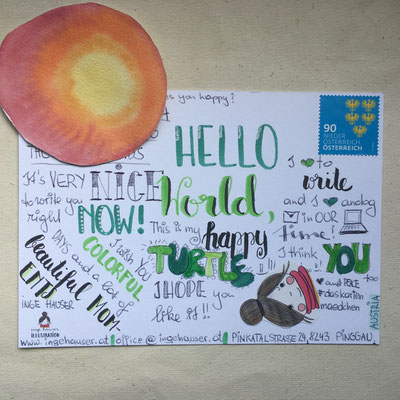 s you happy?
HELLO
World,
It's VERY NICE
to write you
right NOW!
This is my
happy
TURTLE
I wish you
COLORFUL
DAYS and a lot of
beautiful MOM-
ENTS
INGE HAUSER
I HOPE you
like it!!
I ♥ to
write
and I ♥ analog
✉ in OUR
time!
I think
YOU
too
♥ and PEACE
#daskarten
maedchen
90
NIEDER
ÖSTERREICH
ÖSTERREICH
ILLUSTRATION
www.ingehauser.at | office@ingehauser.at | PINKATALSTRASSE 24, 8243 PINGGAU,
AUSTRIA